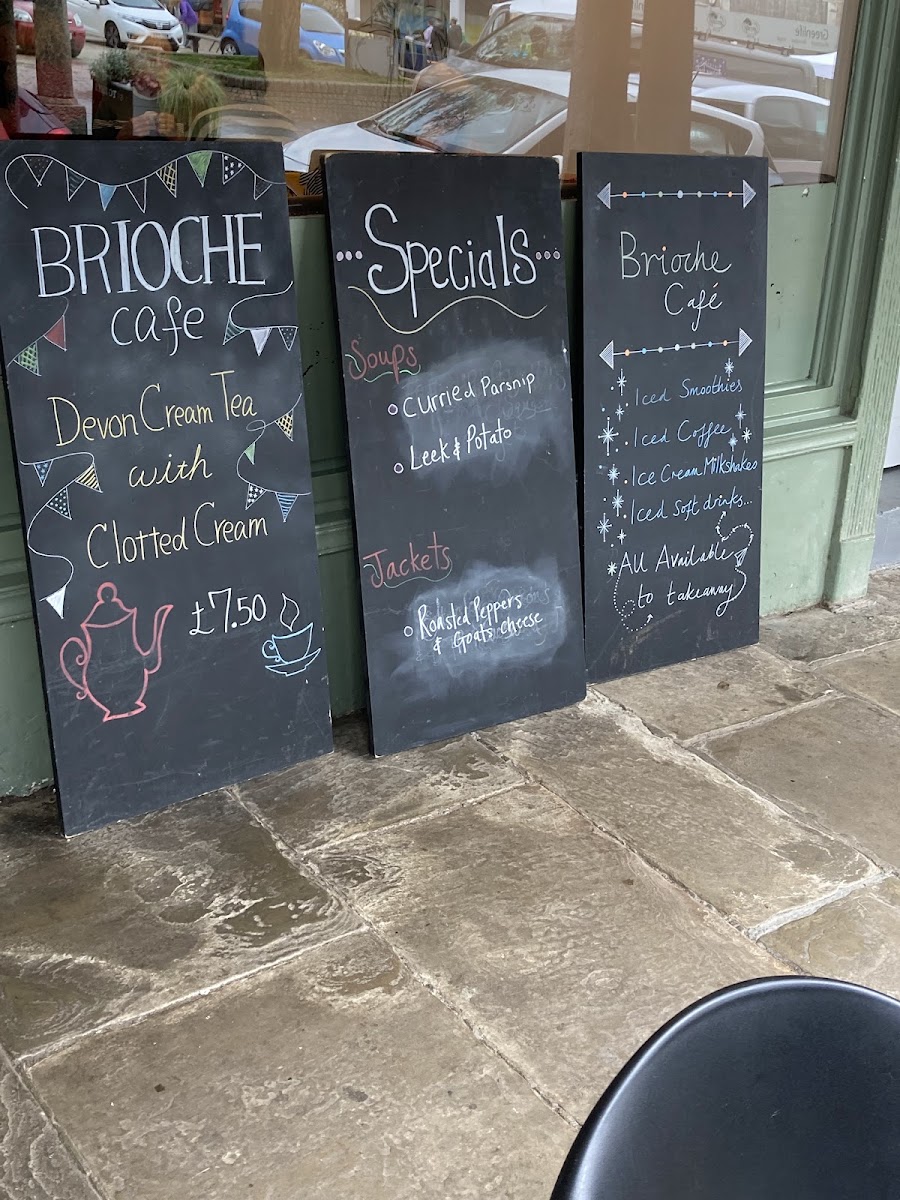 BRIOCHE
cafe
Devon Cream Tea
with
Clotted Cream
£7.50
Specials
Soups
Curried Parsnip
Leek & Potato
Jackets
Roasted Peppers
& Goats cheese
Brioche
Café
Iced Smoothies
Iced Coffee
Ice Cream Milkshakes
Iced Soft drinks...
All Available
to takeaway
Greenlife